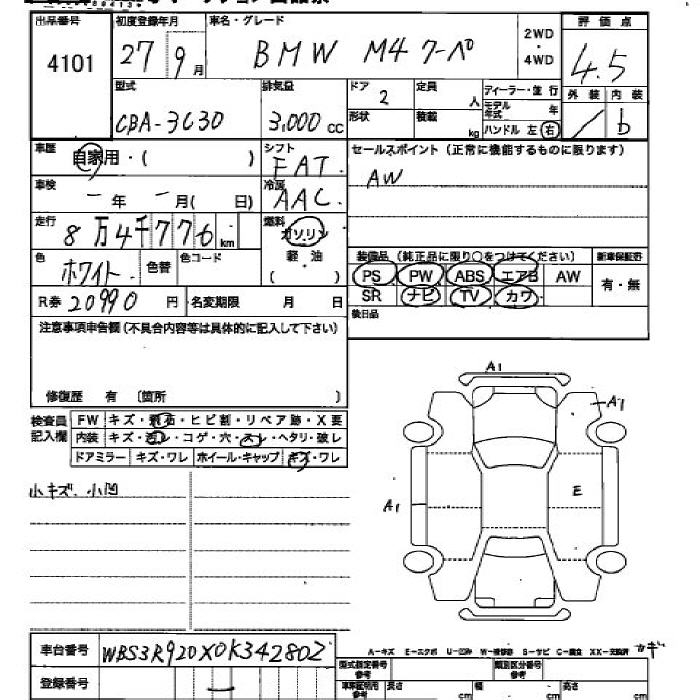 出品番号 初度登録年月 車名・グレード 2WD・4WD 評価点
4101 27 9月 BMW M4 クーペ 4.5
型式 排気量 ドア 2 定員 人 ディーラー・並行 外装 内装
CBA-3C30 3,000cc 形状 積載 kg モデル年式 年 b
ハンドル 左 右
車歴 自家用・( ) シフト FAT. セールスポイント(正常に機能するものに限ります)
車検 一年 一月( 日) 冷房 AAC. AW
走行 8万4千776km 燃料 ガソリン 軽油 ( )
色 ホワイト 色替 色コード 装備品(純正品に限り○をつけてください) 新車保証書
PS PW ABS エアB AW 有・無
SR ナビ TV カワ
R券 20990円 名変期限 月 日 後日品
注意事項申告欄(不具合内容等は具体的に記入して下さい)
修復歴 有 〔箇所 〕
検査員記入欄 FW キズ・飛石・ヒビ割・リペア跡・X要
内装 キズ・汚レ・コゲ・穴・スレ・ヘタリ・破レ
ドアミラー キズ・ワレ ホイール・キャップ キズ・ワレ
A1
A1
小キズ、小凹
A1 E
車台番号 WBS3R920X0K342802
A-キズ E-エクボ U-凹み W-補修跡 S-サビ C-腐食 XX-交換済 カギ
登録番号 型式指定番号 類別区分番号
長さ cm 幅 cm 高さ cm